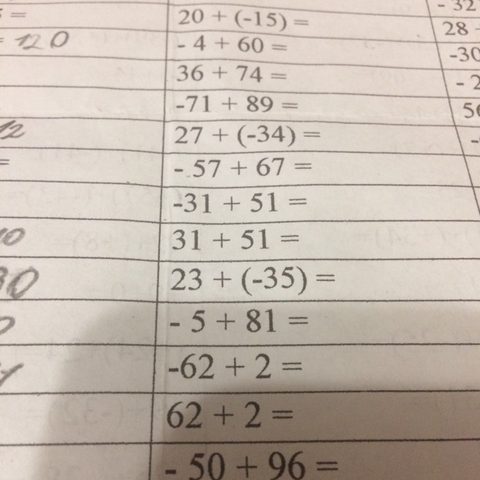 =
20 + (-15) =
- 32
= 120
- 4 + 60 =
28
36 + 74 =
-30
-71 + 89 =
- 2
12
27 + (-34) =
=
- 57 + 67 =
-31 + 51 =
31 + 51 =
23 + (-35) =
- 5 + 81 =
-62 + 2 =
62 + 2 =
- 50 + 96 =